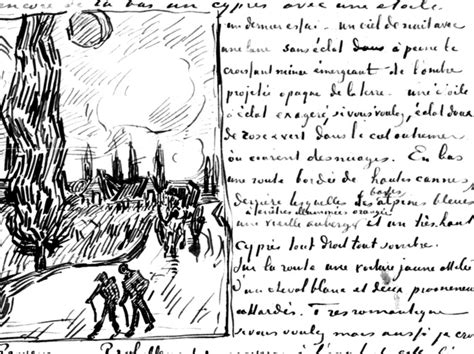 encore de là bas un cyprès avec une étoile
un dernier essai – un ciel de nuit avec
une lune sans éclat dans à peine le
croissant mince émergeant de l'ombre
projetée opaque de la terre – une étoile
à éclat exagéré si vous voulez, éclat doux
de rose & vert dans le ciel outremer
où courent des nuages. En bas
une route bordée de hautes cannes
derrière lesquelles les basses alpines bleues
à fenêtres illuminées orangées
une vieille auberge et un très haut
cyprès tout droit tout sombre.
Sur la route une voiture jaune attelée
d'un cheval blanc et deux promeneurs
attardés. Très romantique
si vous voulez mais aussi je cr